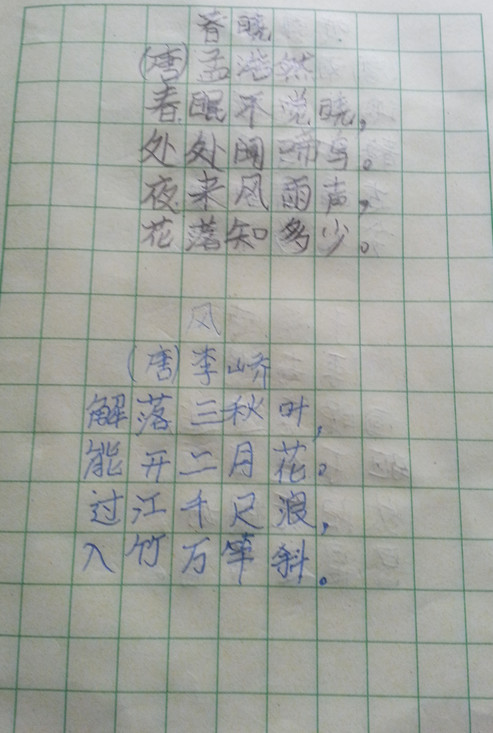 春晓
(唐)孟浩然
春眠不觉晓,
处处闻啼鸟。
夜来风雨声,
花落知多少。
风
(唐)李峤
解落三秋叶,
能开二月花。
过江千尺浪,
入竹万竿斜。